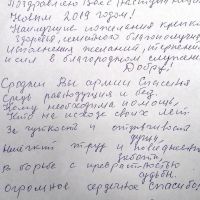 Поздравляю Вас с наступающим
Новым 2019 годом!
Наилучшие пожелания крепкого
здоровья, семейного благополучия
Исполнения желаний, терпения
и сил в благородном служении
Добру!
Сродни Вы армии Спасения
Средь равнодушия и бед.
Кому необходима помощь,
Кто на исходе своих лет.
За чуткость и отзывчивость
души,
Нелёгкий труд и повседневные
заботы,
В борьбе с превратностью
судьбы
Огромное сердечное спасибо!